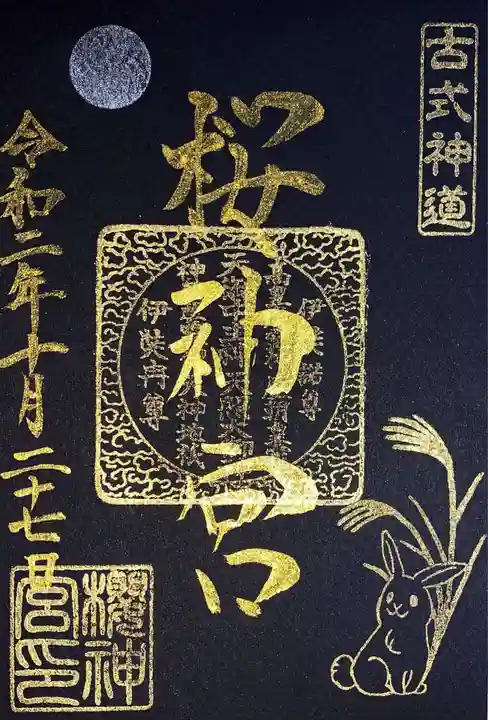 古式神道
桜神宮
伊弉諾尊
伊弉冉尊
令和二年十月二十七日
櫻神宮印